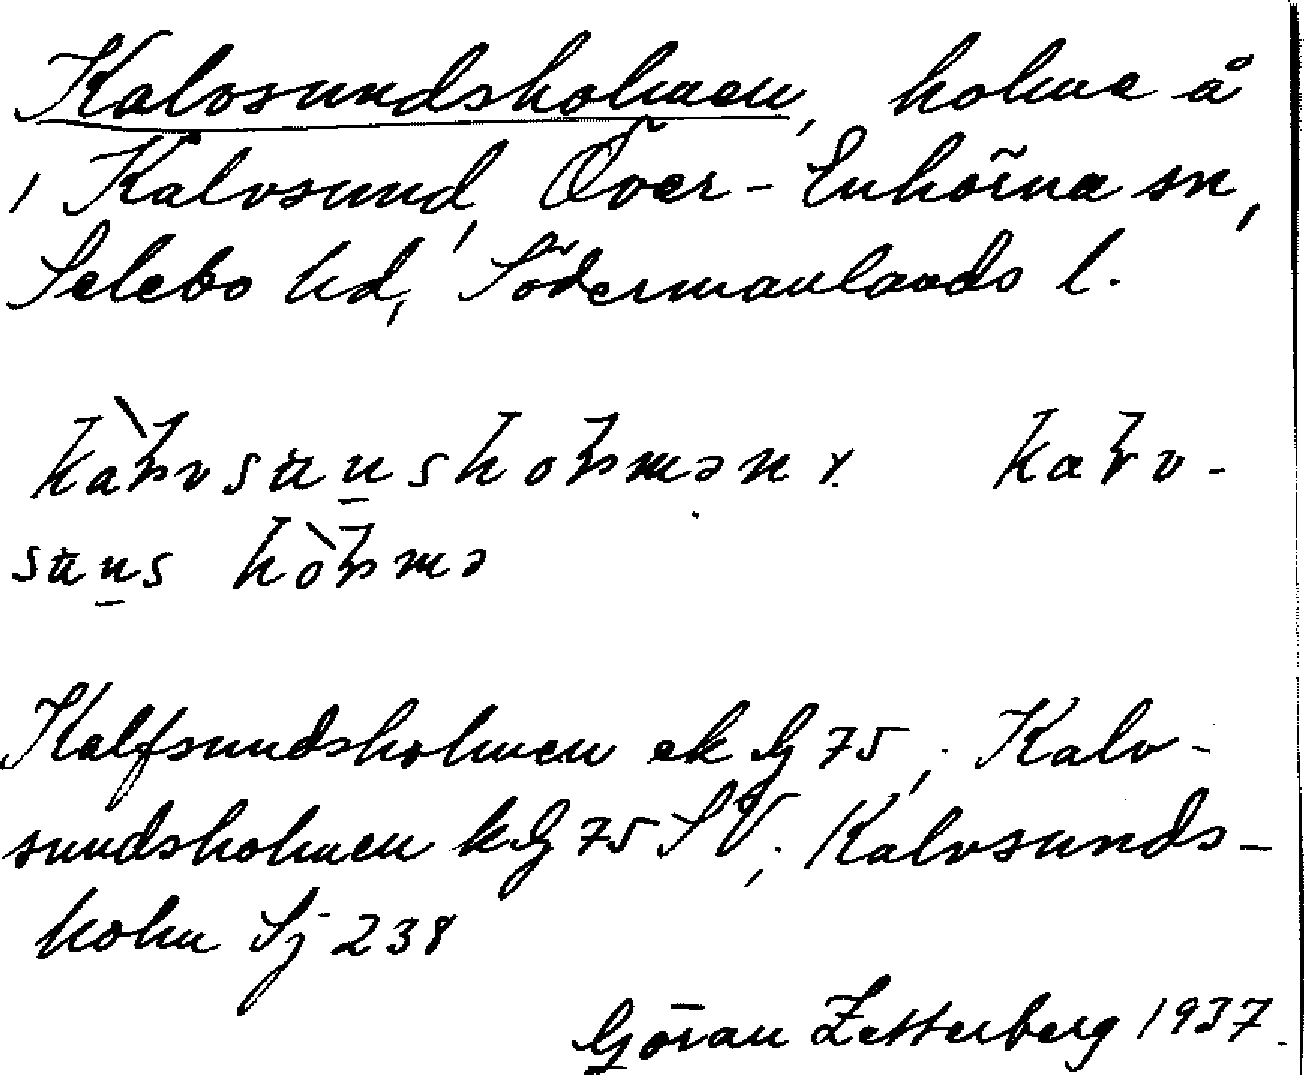 Kalvsundsholmen, holme å
i Kalvsund, Över-Enhörna sn,
Selebo hd, Södermanlands l.
Kalfsundsholmen ek G 75; Kalv-
sundsholmen k G 75 SV; Kalvsunds-
holm Sj 238
Göran Zetterberg 1937